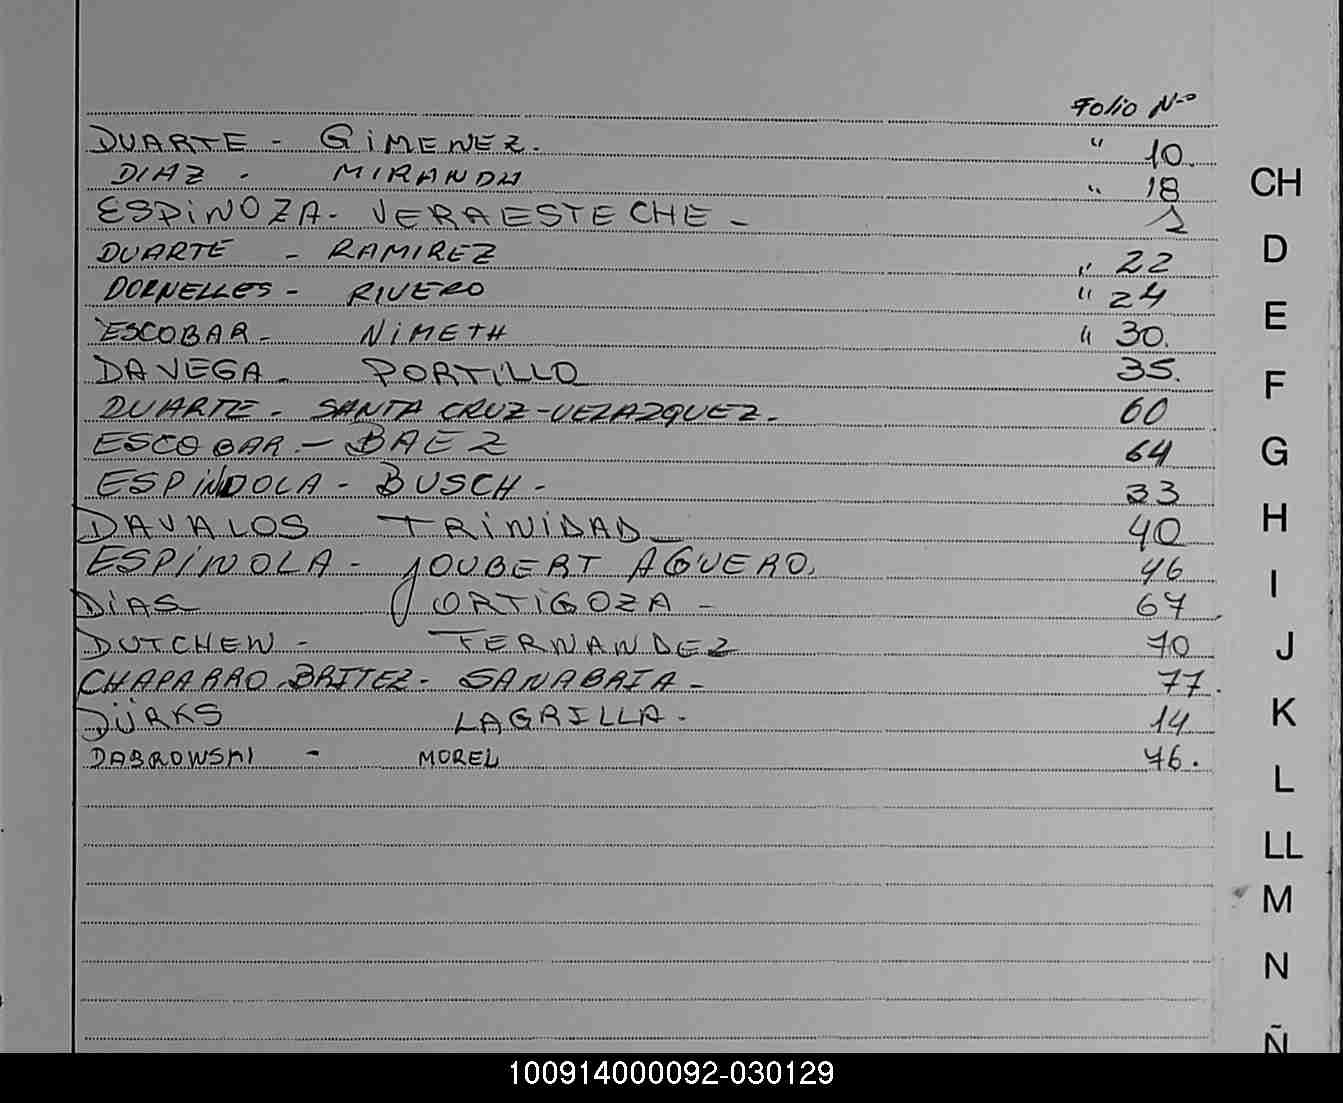 Folio Nº
DUARTE - GIMENEZ. " 10.
DIAZ - MIRANDA " 18
ESPINOZA - VERAESTECHE - 2
DUARTE - RAMIREZ " 22
DORNELLES - RIVERO " 24
ESCOBAR - NIMETH " 30.
DAVEGA - PORTILLO 35.
DUARTE - SANTA CRUZ - VELAZQUEZ. 60
ESCOBAR - BAEZ 64
ESPINDOLA - BUSCH - 33
DAVALOS TRINIDAD 40
ESPINOLA - JOUBERT AGUERO. 46
DIAS ORTIGOZA - 67
DUTCHEN - FERNANDEZ 70
CHAPARRO BRITEZ - SANABRIA - 77.
DÜRKS LAGRILLA - 14
DABROWSKI - MOREL 76.
CH
D
E
F
G
H
I
J
K
L
LL
M
N
Ñ
100914000092-030129